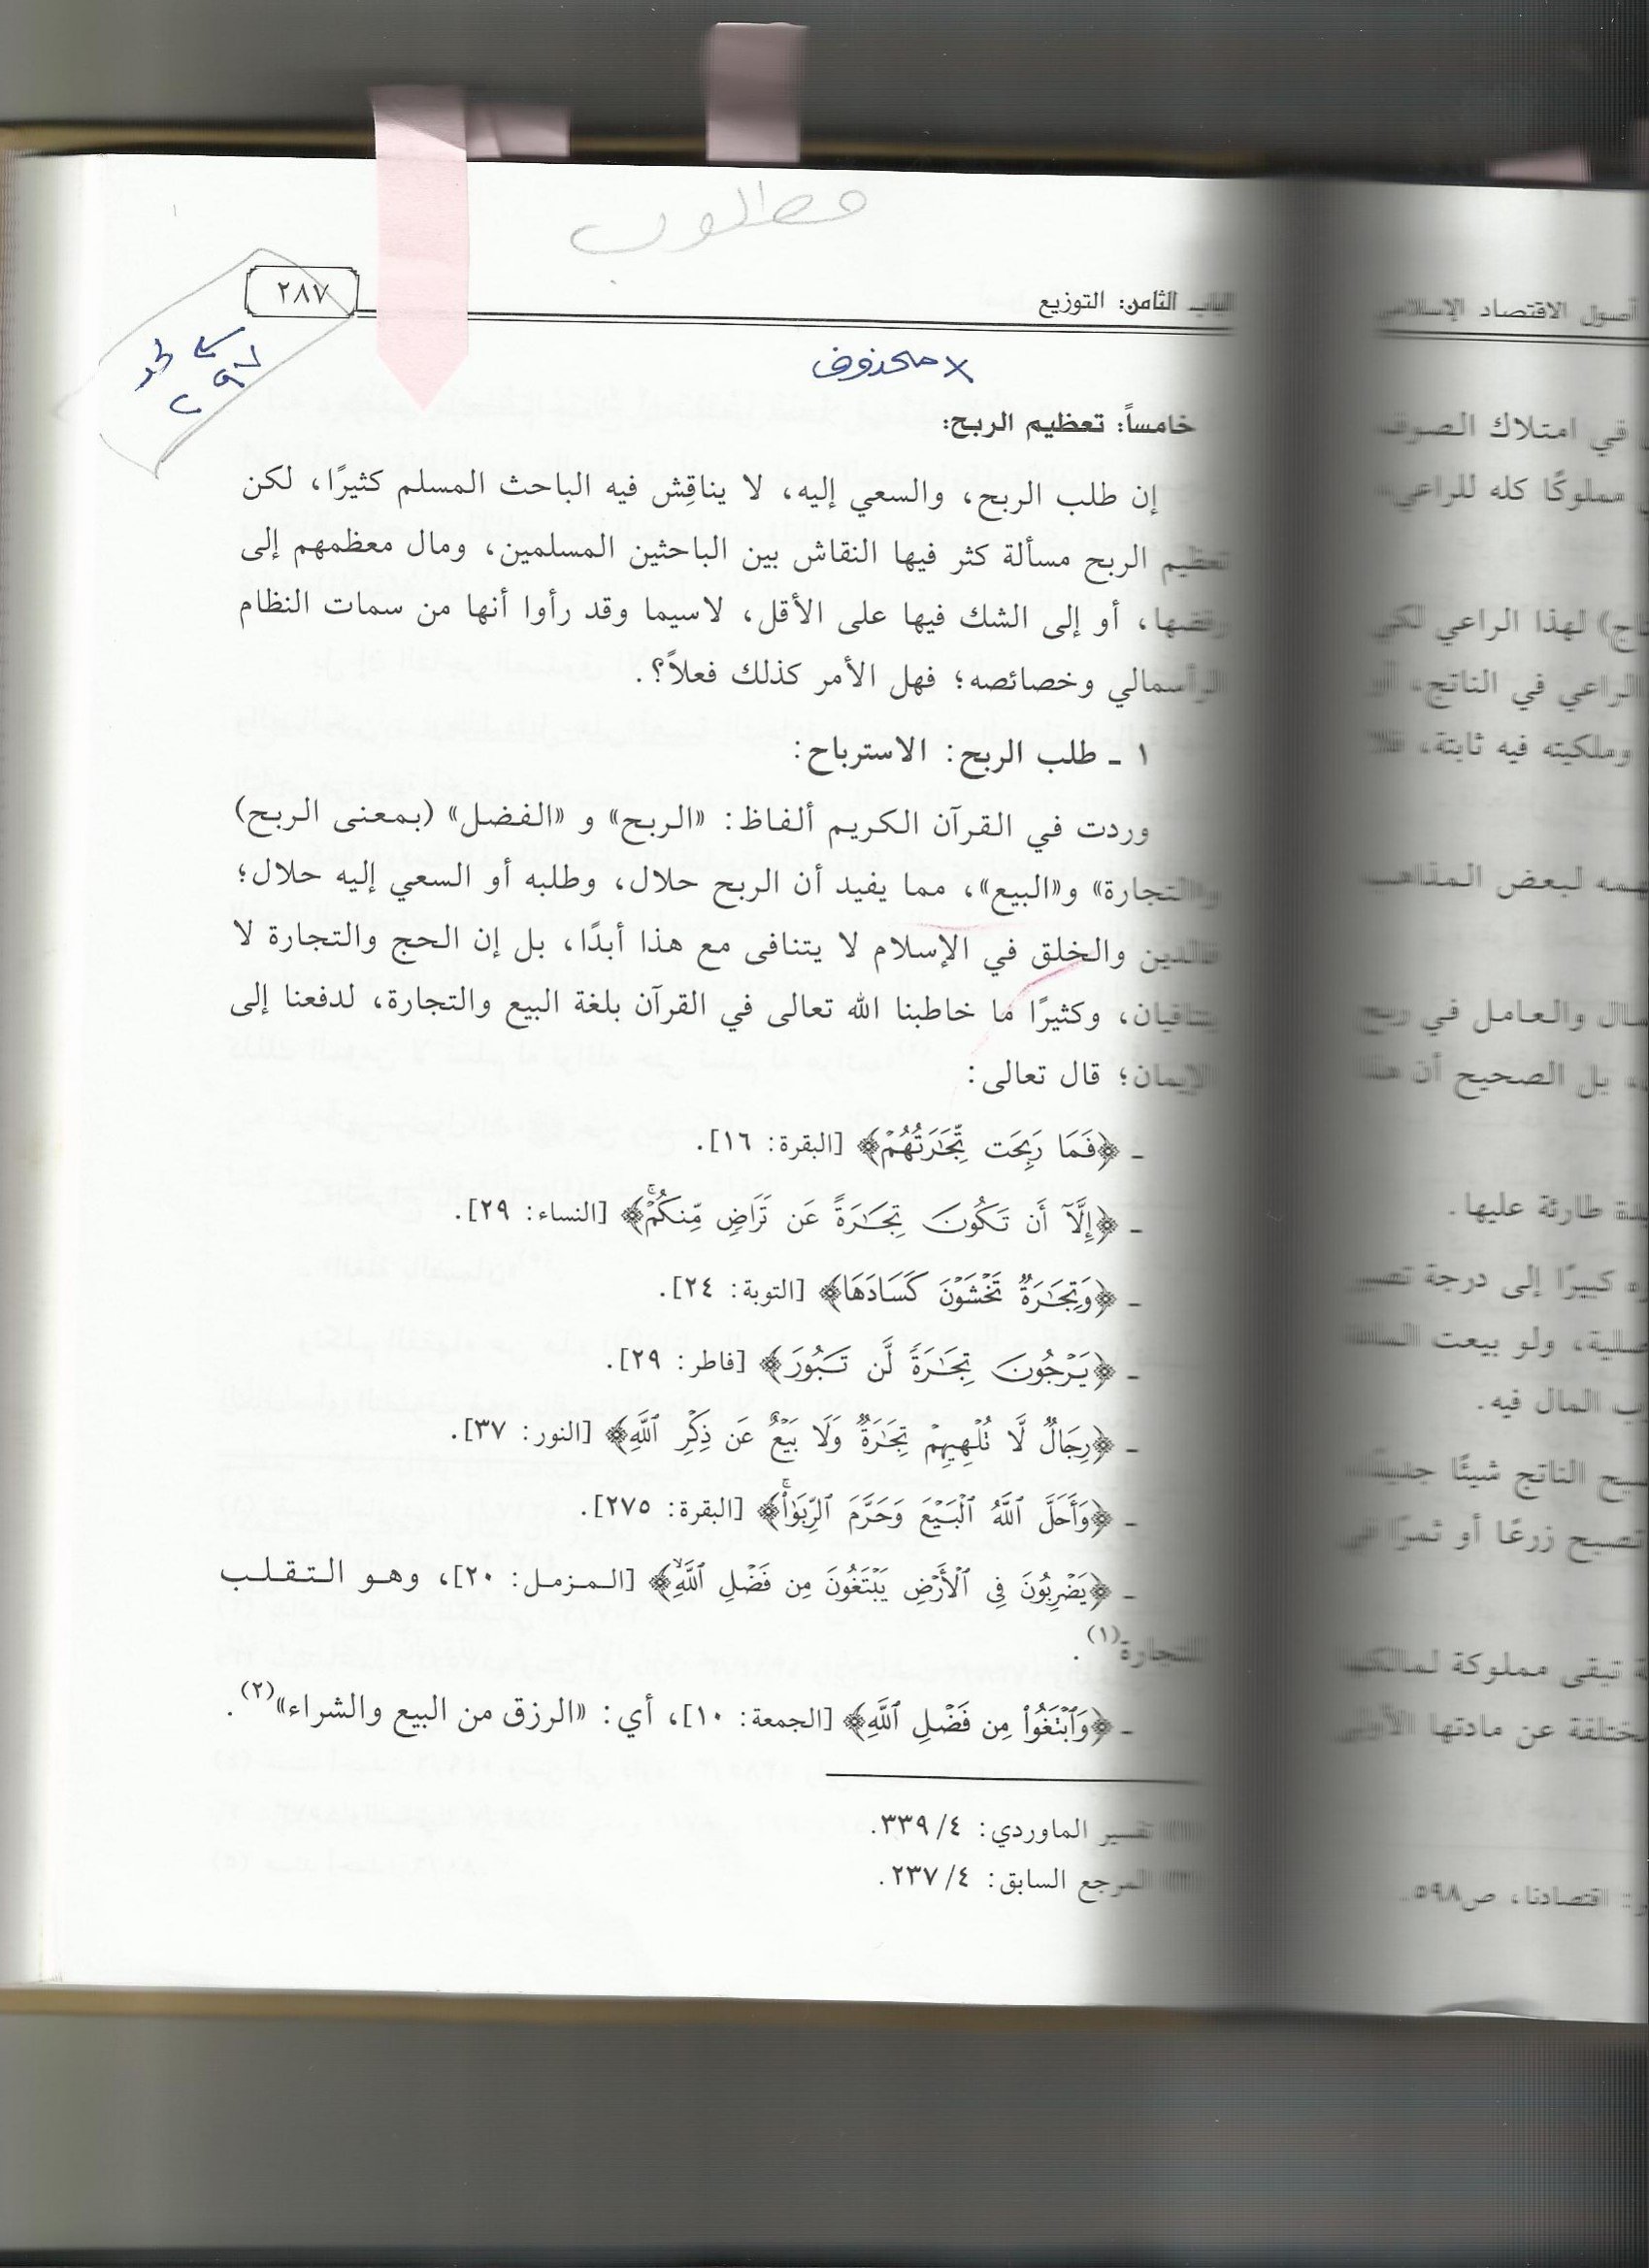 مطلوب
الباب الثامن: التوزيع
٢٨٧
× محذوف
٢٩٧
خامساً: تعظيم الربح:
إن طلب الربح، والسعي إليه، لا يناقِش فيه الباحث المسلم كثيرًا، لكن
تعظيم الربح مسألة كثر فيها النقاش بين الباحثين المسلمين، ومال معظمهم إلى
رفضها، أو إلى الشك فيها على الأقل، لاسيما وقد رأوا أنها من سمات النظام
الرأسمالي وخصائصه؛ فهل الأمر كذلك فعلاً؟.
١ ـ طلب الربح: الاسترباح:
وردت في القرآن الكريم ألفاظ: «الربح» و «الفضل» (بمعنى الربح)
و«التجارة» و«البيع»، مما يفيد أن الربح حلال، وطلبه أو السعي إليه حلال؛
فالدين والخلق في الإسلام لا يتنافى مع هذا أبدًا، بل إن الحج والتجارة لا
يتنافيان، وكثيرًا ما خاطبنا الله تعالى في القرآن بلغة البيع والتجارة، لدفعنا إلى
الإيمان؛ قال تعالى:
ـ ﴿فَمَا رَبِحَت تِّجَٰرَتُهُمْ﴾ [البقرة: ١٦].
ـ ﴿إِلَّآ أَن تَكُونَ تِجَٰرَةً عَن تَرَاضٍ مِّنكُمْۚ﴾ [النساء: ٢٩].
ـ ﴿وَتِجَٰرَةٌ تَخْشَوْنَ كَسَادَهَا﴾ [التوبة: ٢٤].
ـ ﴿يَرْجُونَ تِجَٰرَةً لَّن تَبُورَ﴾ [فاطر: ٢٩].
ـ ﴿رِجَالٌ لَّا تُلْهِيهِمْ تِجَٰرَةٌ وَلَا بَيْعٌ عَن ذِكْرِ ٱللَّهِ﴾ [النور: ٣٧].
ـ ﴿وَأَحَلَّ ٱللَّهُ ٱلْبَيْعَ وَحَرَّمَ ٱلرِّبَوٰا۟ۚ﴾ [البقرة: ٢٧٥].
ـ ﴿يَضْرِبُونَ فِى ٱلْأَرْضِ يَبْتَغُونَ مِن فَضْلِ ٱللَّهِۙ﴾ [المزمل: ٢٠]، وهو التقلب
للتجارة(١).
ـ ﴿وَٱبْتَغُوا۟ مِن فَضْلِ ٱللَّهِ﴾ [الجمعة: ١٠]، أي: «الرزق من البيع والشراء»(٢).
تفسير الماوردي: ٤/ ٣٣٩.
المرجع السابق: ٤/ ٢٣٧.
أصول الاقتصاد الإسلامي
في امتلاك الصوف
مملوكًا كله للراعي،
لهذا الراعي لكي
الراعي في الناتج، أو
وملكيته فيه ثابتة، فلا
لبعض المذاهب
والعامل في ربح
بل الصحيح أن هذا
طارئة عليها.
كبيرًا إلى درجة تصير
ولو بيعت
المال فيه.
الناتج شيئًا جديدًا،
تصبح زرعًا أو ثمرًا في
تبقى مملوكة لمالكها
مختلفة عن مادتها الأولى
اقتصادنا، ص٥٩٨.